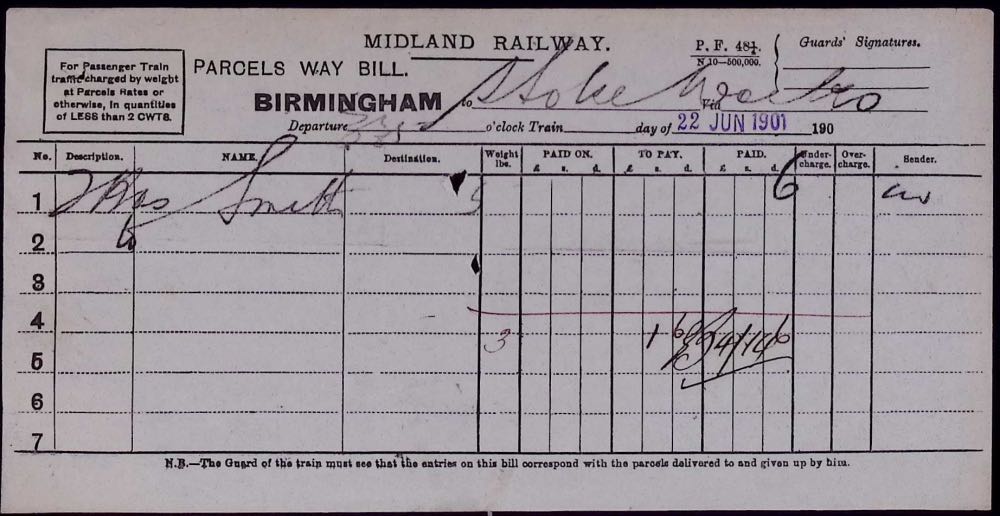 MIDLAND RAILWAY.
P. F. 48¼.
N.10—500,000.
Guards' Signatures.
For Passenger Train
traffic charged by weight
at Parcels Rates or
otherwise, in quantities
of LESS than 2 CWTS.
PARCELS WAY BILL.
BIRMINGHAM to Stoke Works
Via
Departure o'clock Train day of 22 JUN 1901 190
No. Description. NAME. Destination. Weight lbs. PAID ON. £ s. d. TO PAY. £ s. d. PAID. £ s. d. Under-charge. Over-charge. Sender.
1 Smith 6
2
3
4
3 1 6
5
6
7
N.B.—The Guard of the train must see that the entries on this bill correspond with the parcels delivered to and given up by him.